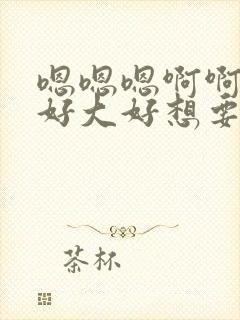 嗯嗯嗯啊啊
好大好想要
茶杯